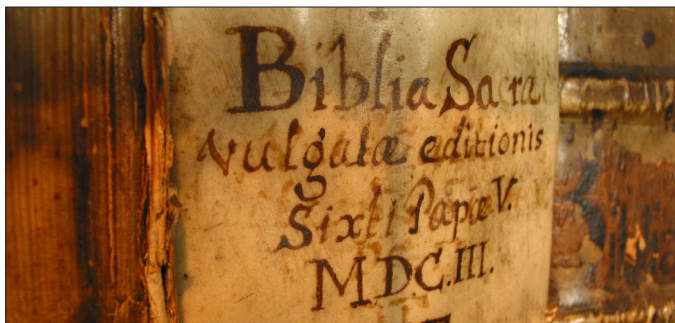 Biblia Sacra
vulgatæ editionis
Sixti Papæ V.
M.DC.III.